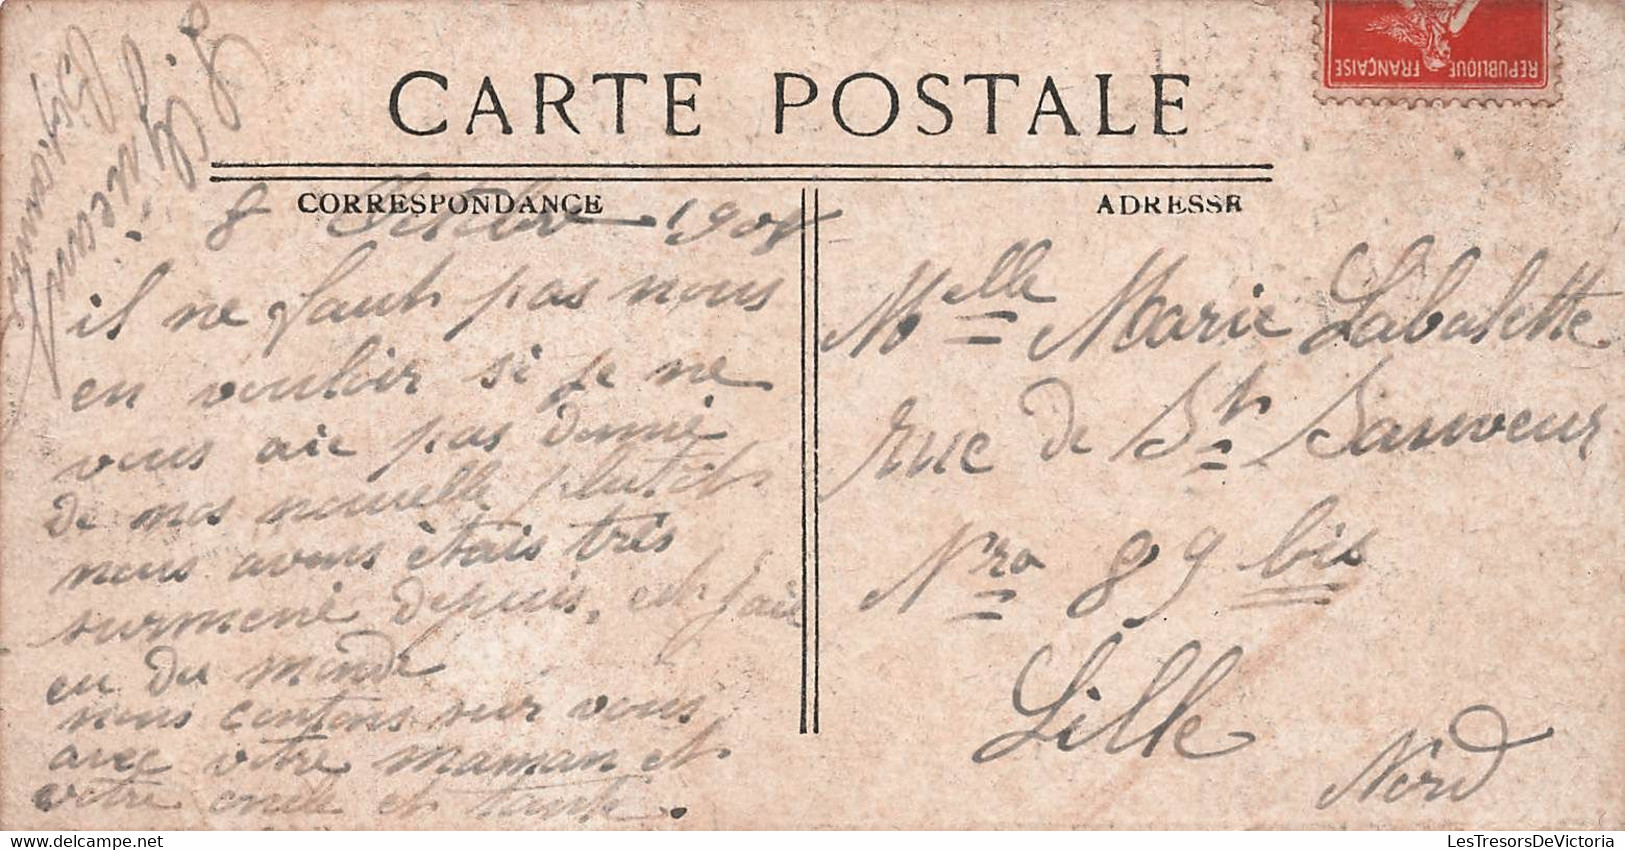 CARTE POSTALE
REPUBLIQUE FRANÇAISE
CORRESPONDANCE
ADRESSE
8 Octobre
il ne faut pas nous
en vouloir si je ne
vous aie pas donné
de nos nouvelle plutôt
nous avons étais très
surmené depuis, et
eu du monde
nous contons sur vous
avec votre maman et
votre oncle et tante.
Melle Marie Labalette
rue de St Sauveur
Nro 89 bis
Lille
Nord
LesTresorsDeVictoria